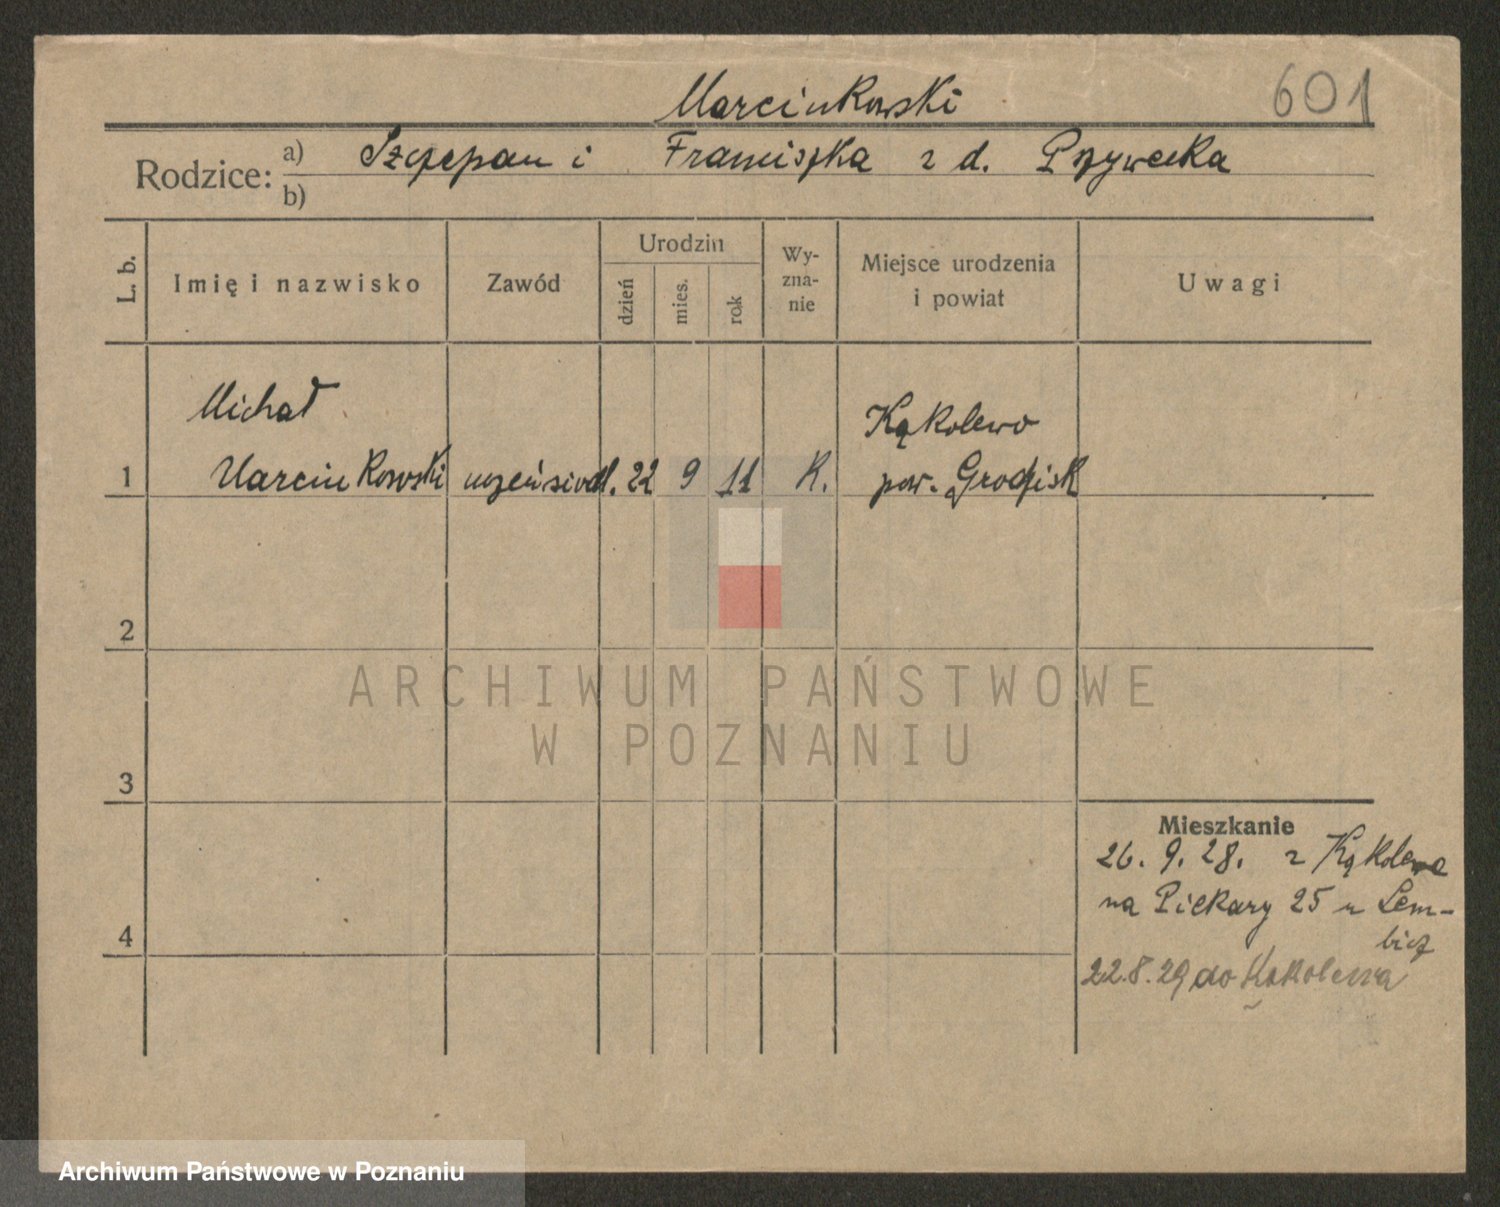 Marcinkowski
601
Rodzice: a) Szczepan i Franciszka z d. Przywecka
b)
L. b.
Imię i nazwisko
Zawód
Urodzin
dzień
mies.
rok
Wy-
zna-
nie
Miejsce urodzenia
i powiat
Uwagi
Michał
Kąkolewo
1 Marcinkowski uczeń siodl. 22 9 11 K. pow. Grodzisk
2
ARCHIWUM PAŃSTWOWE
W POZNANIU
3
Mieszkanie
26. 9. 28. z Kąkolewa
na Piekary 25 u Lem-
bicz
4
22.8.29 do Kąkolewa
Archiwum Państwowe w Poznaniu